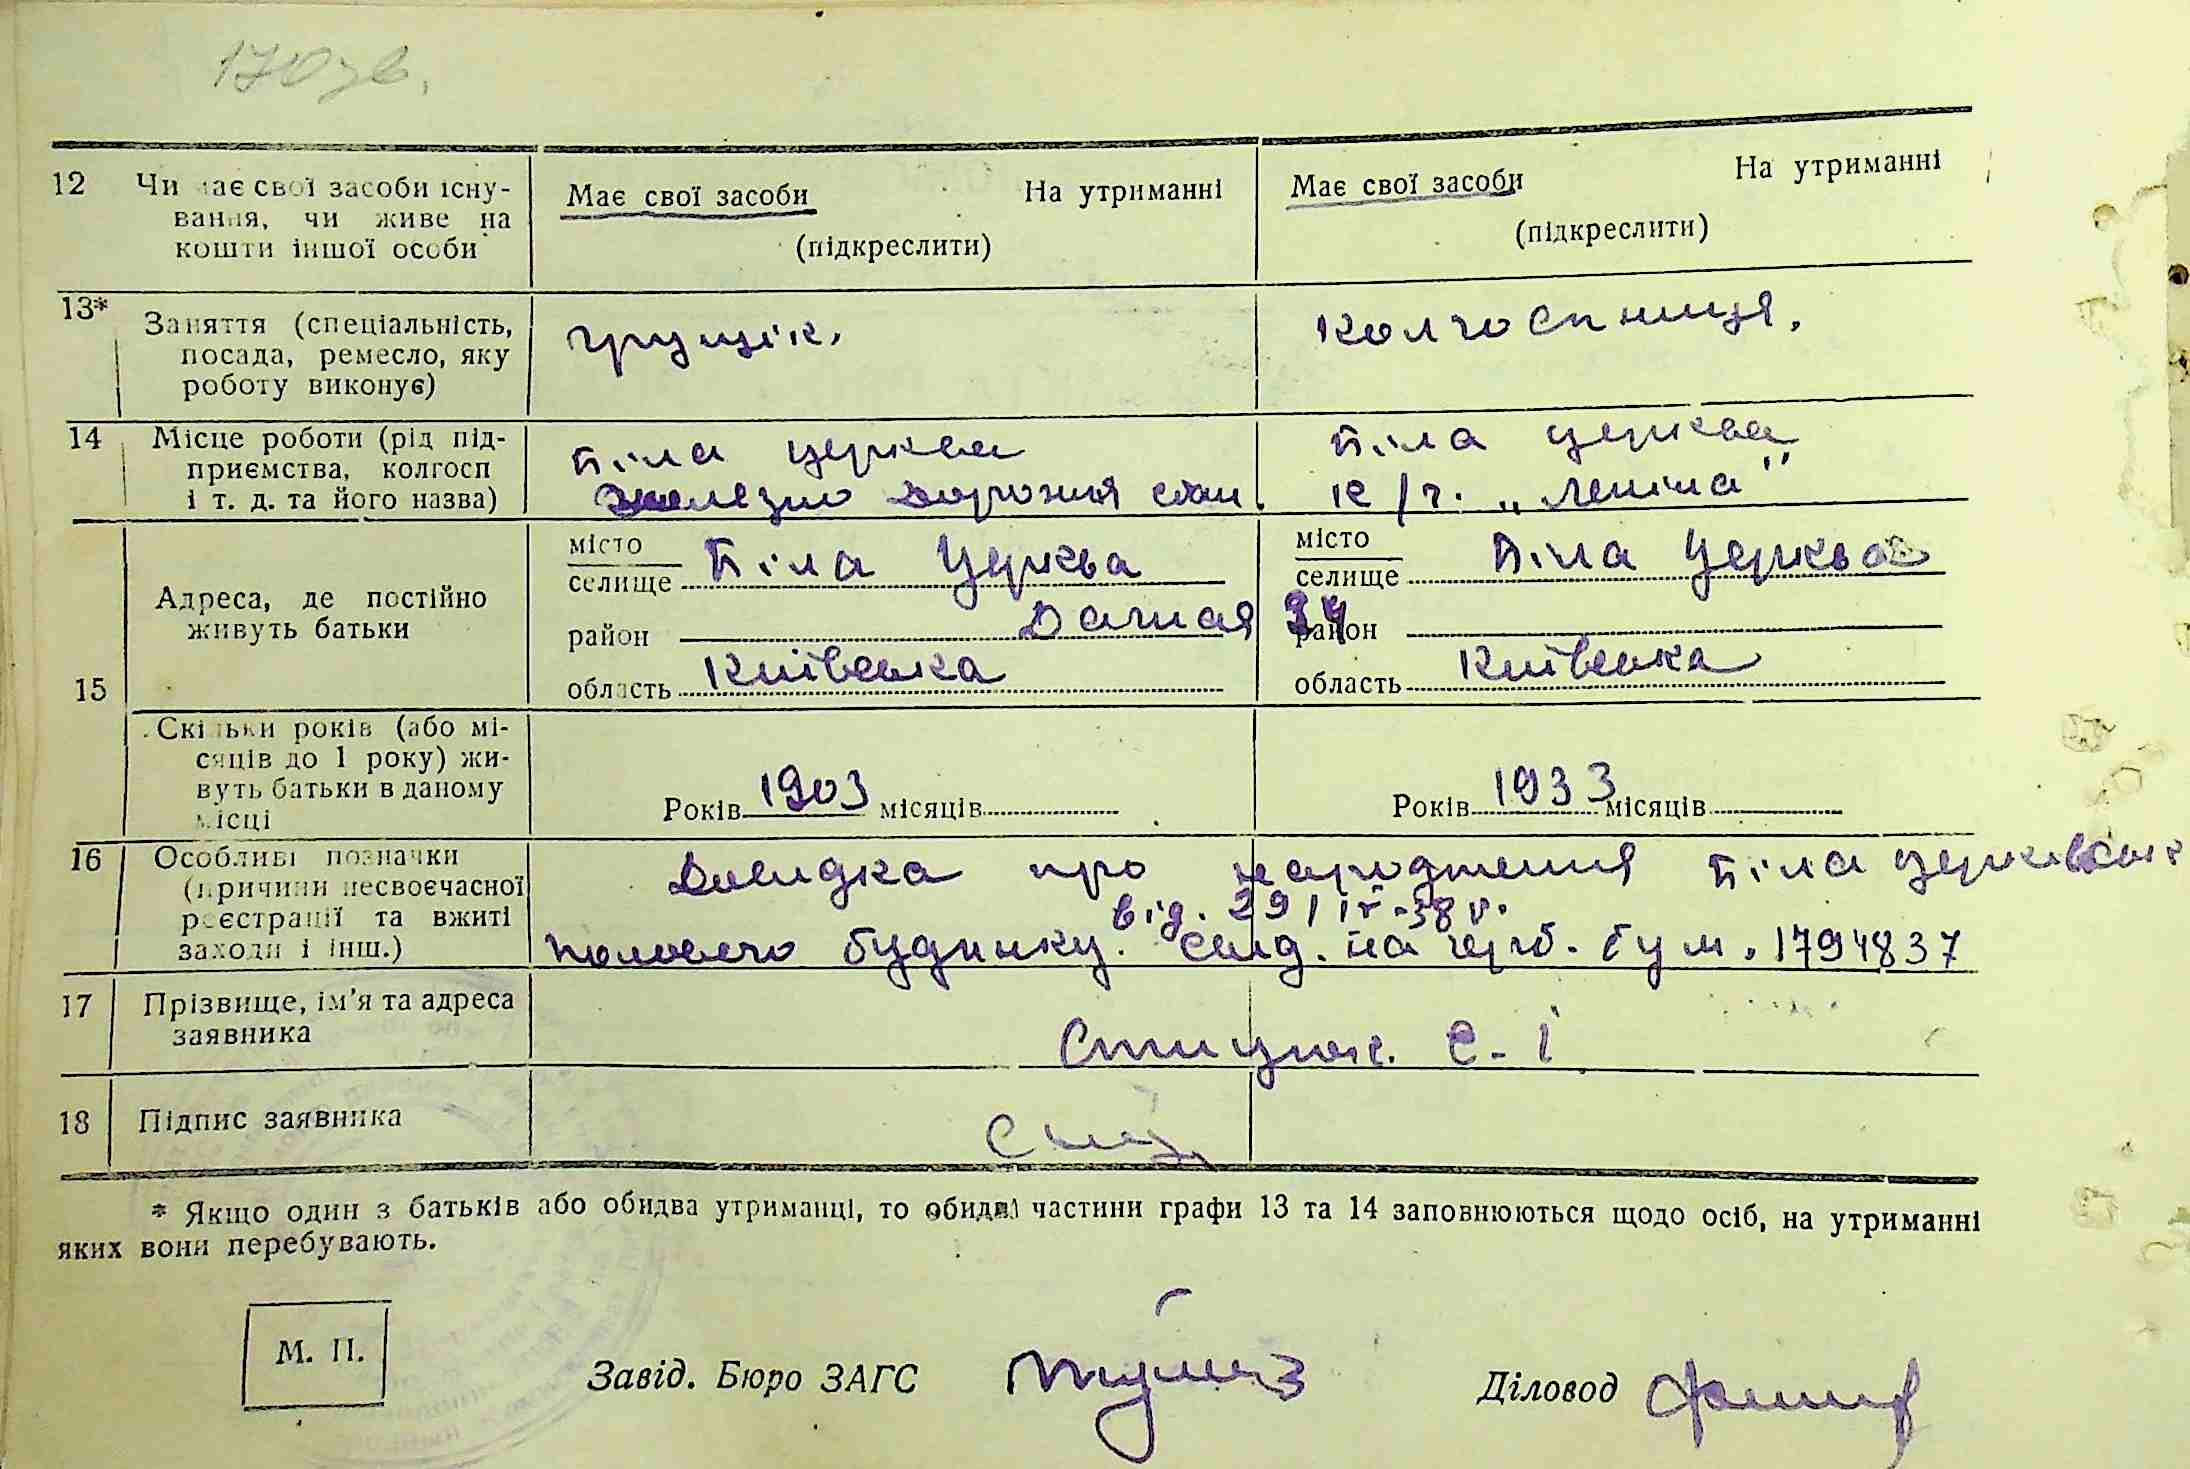 170 зв.
12 Чи має свої засоби існу-
вання, чи живе на
кошти іншої особи
Має свої засоби На утриманні
(підкреслити)
Має свої засоби На утриманні
(підкреслити)
13* Заняття (спеціальність,
посада, ремесло, яку
роботу виконує)
грущік.
колгоспниця.
14 Місце роботи (рід під-
приємства, колгосп
і т. д. та його назва)
Біла церква
железно дорожня стан.
Біла церква
к/г. „Леніна"
15 Адреса, де постійно
живуть батьки
місто
селище Біла Церква
район Дачная 34
область Київська
місто
селище Біла Церква
район
область Київська
Скільки років (або мі-
сяців до 1 року) жи-
вуть батьки в даному
місці
Років 1903 місяців
Років 1933 місяців
16 Особливі позначки
(причини несвоєчасної
реєстрації та вжиті
заходи і інш.)
Довидка про народження Біла церківськ
від. 29/IV-38 р.
половего будинку. свид. на герб. бум. 1794837
17 Прізвище, ім'я та адреса
заявника
Є. І
18 Підпис заявника
* Якщо один з батьків або обидва утриманці, то обидві частини графи 13 та 14 заповнюються щодо осіб, на утриманні
яких вони перебувають.
М. П.
Завід. Бюро ЗАГС
Діловод